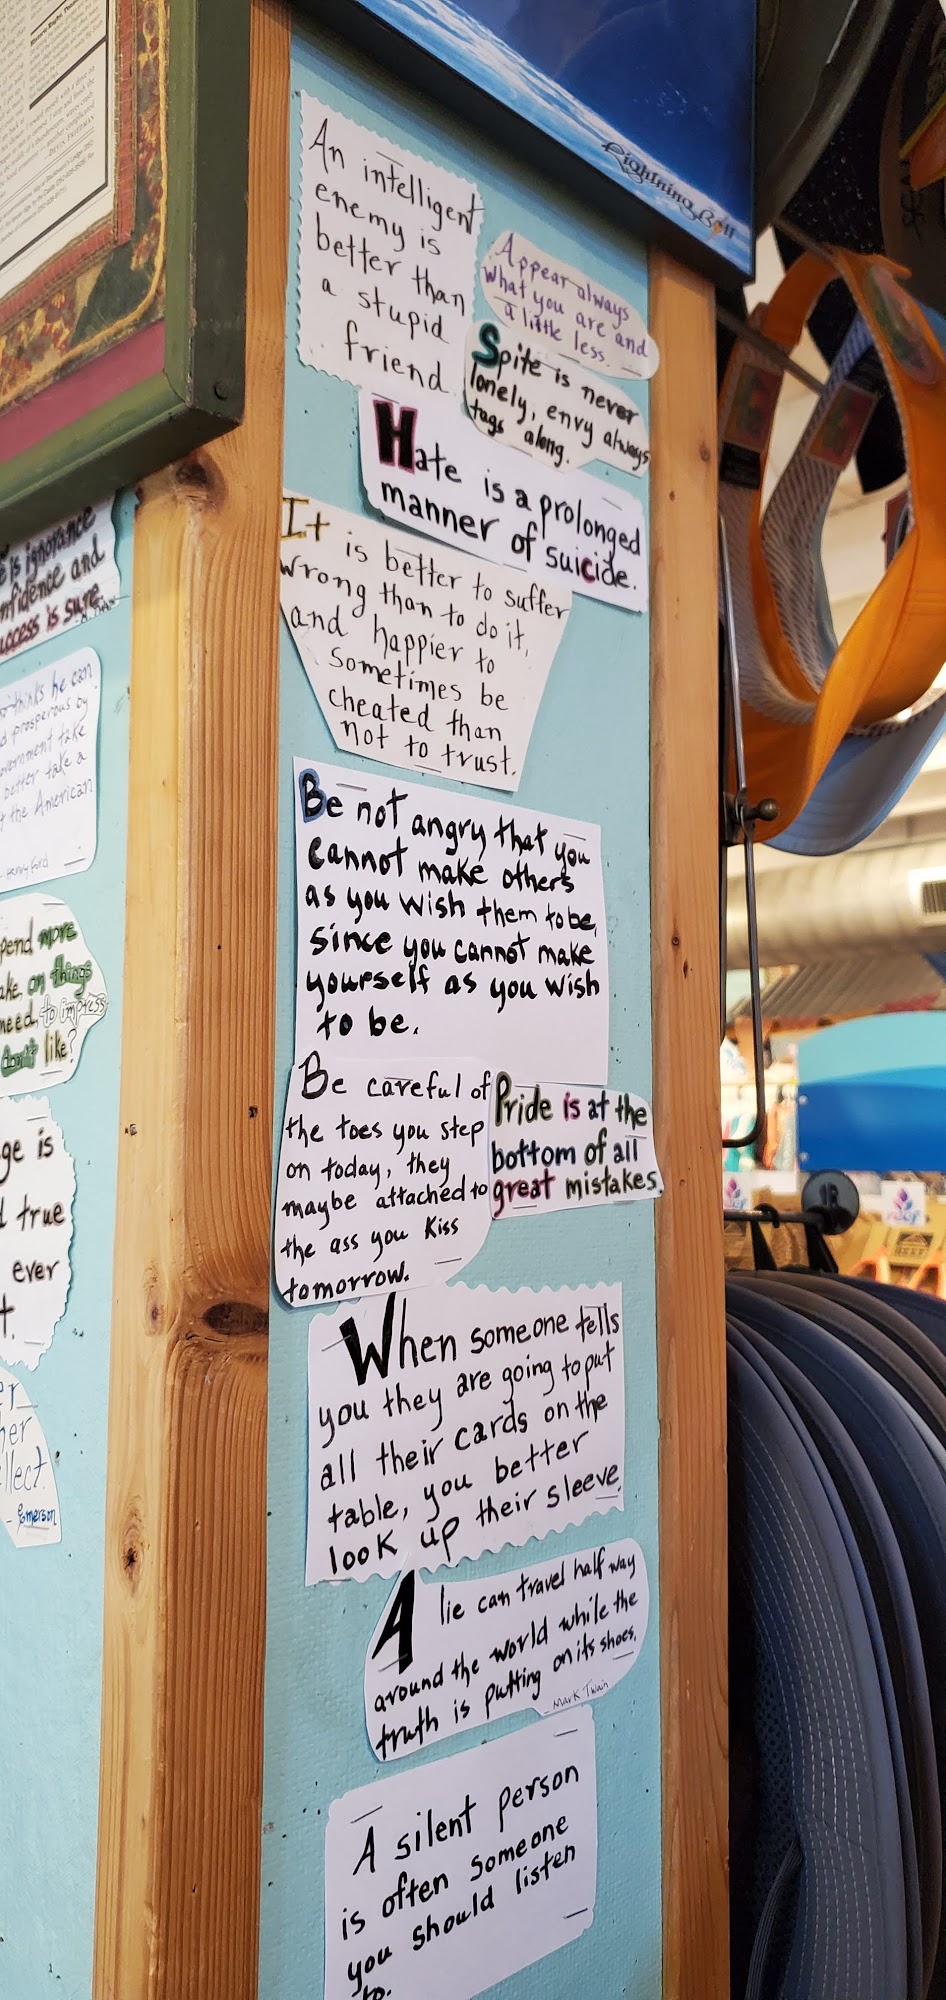 Lightning Bolt
An intelligent
enemy is
better than
a stupid
friend
Appear always
what you are and
a little less.
Spite is never
lonely, envy always
tags along.
Hate is a prolonged
manner of suicide.
It is better to suffer
wrong than to do it,
and happier to
sometimes be
cheated than
not to trust.
Be not angry that you
cannot make others
as you wish them to be,
since you cannot make
yourself as you wish
to be.
Be careful of
the toes you step
on today, they
maybe attached to
the ass you kiss
tomorrow.
Pride is at the
bottom of all
great mistakes.
When someone tells
you they are going to put
all their cards on the
table, you better
look up their sleeve.
A lie can travel half way
around the world while the
truth is putting on its shoes.
- Mark Twain
A silent person
is often someone
you should listen
to.
is ignorance
and
success is sure.
thinks he can
prosperous by
government take
better take a
the American
- Henry Ford
spend more
on things
need, to impress
don't like?
is
true
ever
- Emerson